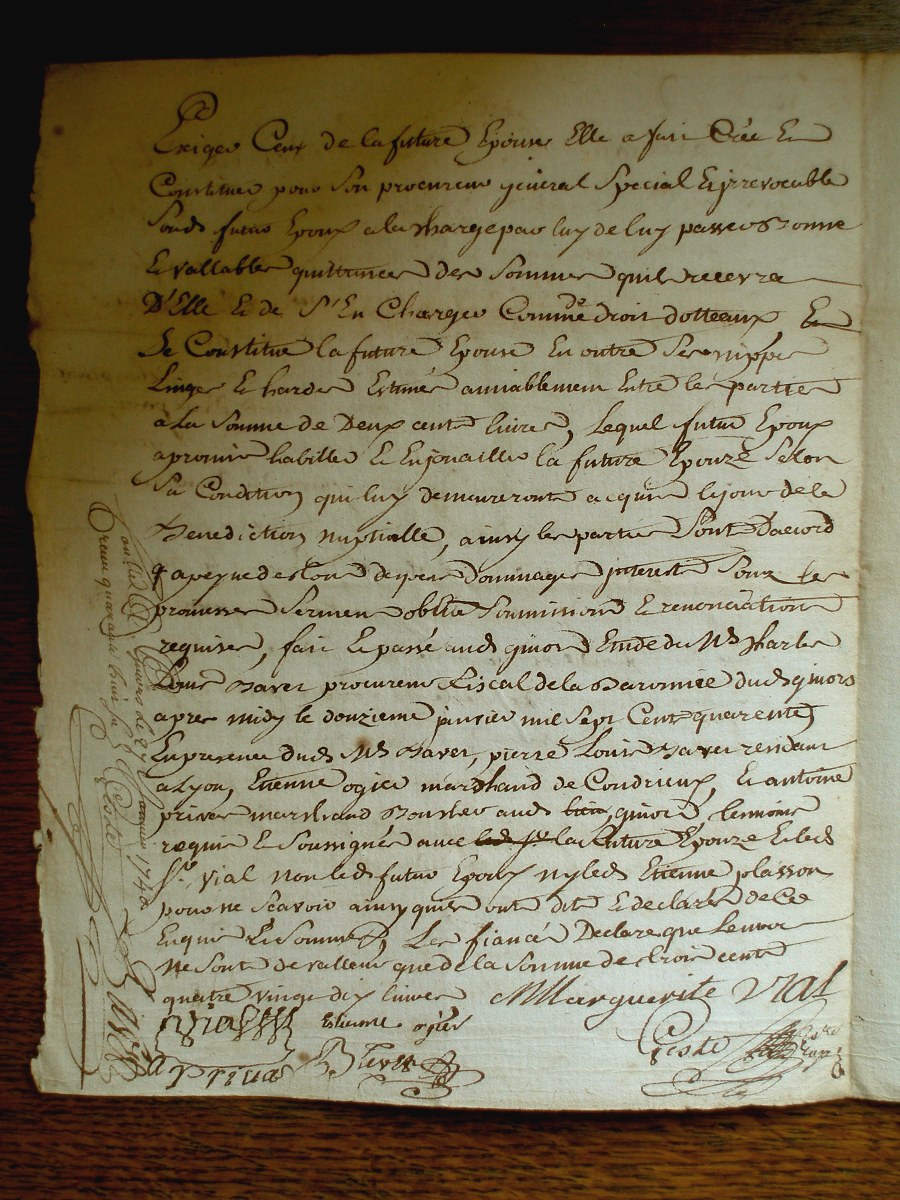 Exiger Ceux de la future Epouse Elle a fait Crée Et
Constitué pour Son procureur general Special Et jrrevocable
Sond futur Epoux a la Charge par luy de luy passer Bonne
Et vallable quittance des Sommes quil recevra
D'Elle Et de S'En Charger Comme de droit dotteaux, Et
Se Constitue la future Epouse En outre Ses nippes
Linges Et hardes Estimés amiablement Entre les parties
a La Somme de Deux cents livres, Lequel futur Epoux
a promis habiller Et Enjouailler la future Epouze Selon
Sa Condition qui luy demeureront acquis le jour de la
Benediction nuptialle, ainsy les parties Sont Daccord
a peyne de tous depens Dommages jnterests Sous les
promesses Serment obllig Soumissions Et renonciations
requises, fait Et passé aud gimors Etude du Mr Charles
Louis Baver procureur fiscal de la Baronnie dud gimors
apres midy le douzieme janvier mil Sept Cent quarente
En presence dud Mr Baver, pierre Louis Baver residant
a Lyon, Etienne ogier marchand de Condrieux, Et antoine
privas marchand Boucher aud gimors, temoins
requis Et Soussignés avec la future Epouze Et led
Sr. Vial non led futur Epoux ny led Etienne plasson
pour ne Scavoir ainsy quils ont dit Et declaré de Ce
Enquis Et Sommés, Les fiancés Declare que Leurs
ne Sont de valleur que de la Somme de trois cents
quatre vingt dix livres M Marguerite Vial
Vial Estienne ogier
Privas Baver Coste
janvier 1740